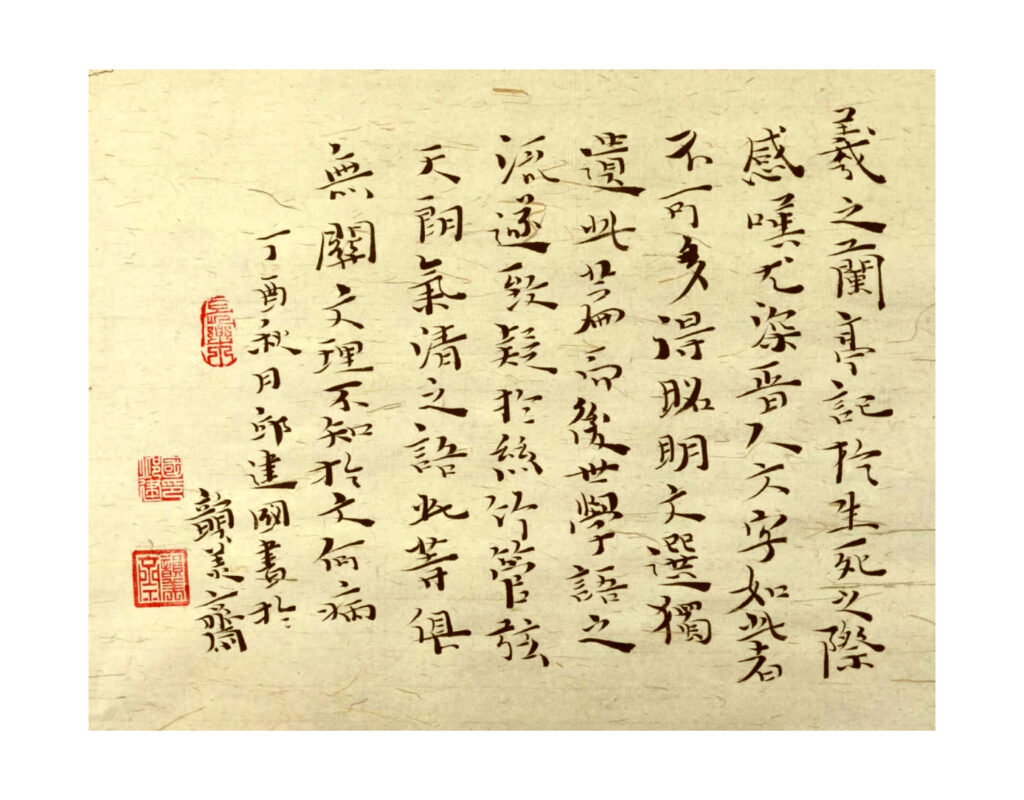 羲之蘭亭記於生死之際
感嘆尤深晋人文字如此者
不可多得昭明文選獨
遺此篇而後世學語之
流遂致疑於絲竹管弦
天朗氣清之語此等俱
無關文理不知於文何病
丁酉秋月邱建國書於
韻美齋
長樂